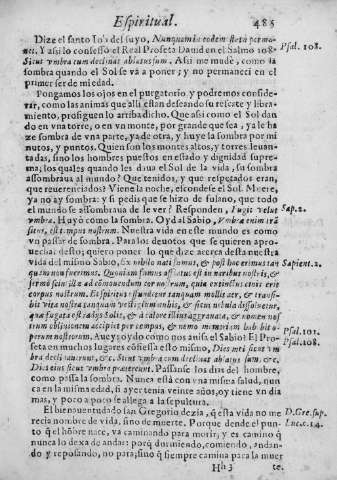 Espiritual. 485
Dize el santo Iob del suyo, Nunquam in eodem statu perma-
net. Y assi lo confessò el Real Profeta Dauid en el Salmo 108. Psal. 108.
Sicut vmbra cum declinat ablatus sum. Assi me mudè, como la
sombra quando el Sol se và a poner; y no permaneci en el
primer ser de mi edad.
Pongamos los ojos en el purgatorio y podremos conside-
rar, como las animas que alli estan deseando su rescate y libra-
miento, prosiguen lo arriba dicho. Que assi como el Sol dan
do en vna torre, o en vn monte, por grande que sea, ya le ha
ze sombra de vna parte, ya de otra, y huye la sombra por mi
nutos, y puntos. Quien son los montes altos, y torres leuan-
tadas, sino los hombres puestos en estado y dignidad supre
ma, los quales quando les daua el Sol de la vida, su sombra
assombraua al mundo? Que tenidos, y que respetados eran,
que reuerenciados? Viene la noche, escondese el Sol. Muere,
ya no ay sombra: y si pedis que se hizo de fulano, que todo
el mundo se assombraua de le ver? Responden, Fugit velut Sap. 2.
vmbra. Huyò como la sombra. Oyd al Sabio, Vmbræ enim trā
situs, est tempus nostrum. Nuestra vida en este mundo es como
vn passar de sombra. Para los deuotos que se quieren apro-
uechar desto; quiero poner lo que dize acerca desta nuestra
vida el mismo Sabio, Ex nihilo nati sumus, & post hoc erimus tan Sapient. 2.
quam non fuerimus. Quoniam fumus afflatus est in naribus nostris, &
sermo scintillæ ad commouendum cor nostrum, quia extincta cinis erit
corpus nostrum. Et spiritus effundetur tanquam mollis aer, & transi-
bit vita nostra tanquam vestigium nubis, & sicut nebula dissoluetur,
quæ fugata est à radijs Solis, & à calore illius aggrauata, & nomen nos
trum obliuionem accipiet per tempus, & nemo memoriam habebit o-
perum nostrorum. Aueys oydo como nos auisa el Sabio? El Pro- Psal. 101.
feta en muchos lugares cōfiessa esto mismo, Dies mei sicut vm- Psal. 108.
bra declinauerunt, &c. Sicut vmbra cum declinat ablatus sum, &c.
Dies eius sicut vmbra prætereunt. Passanse los dias del hombre,
como passa la sombra. Nunca està con vna misma salud, nun
ca en la misma edad, si ayer tenia veinte años, oy tiene vn dia
mas, y poco a poco se allega a la sepultura.
El bienauenturado san Gregorio dezia, q̃ esta vida no me D. Gre. sup.
recia nombre de vida, sino de muerte. Porque desde el pun- Luc. c. 14.
to q̃ el hõbre nace, va caminando para morir; y es camino q̃
nunca lo dexa de andar: porq̃ durmiendo, comiendo, andan-
do y reposando, no para; sino q̃ siempre camina para la muer
Hh 3 te.